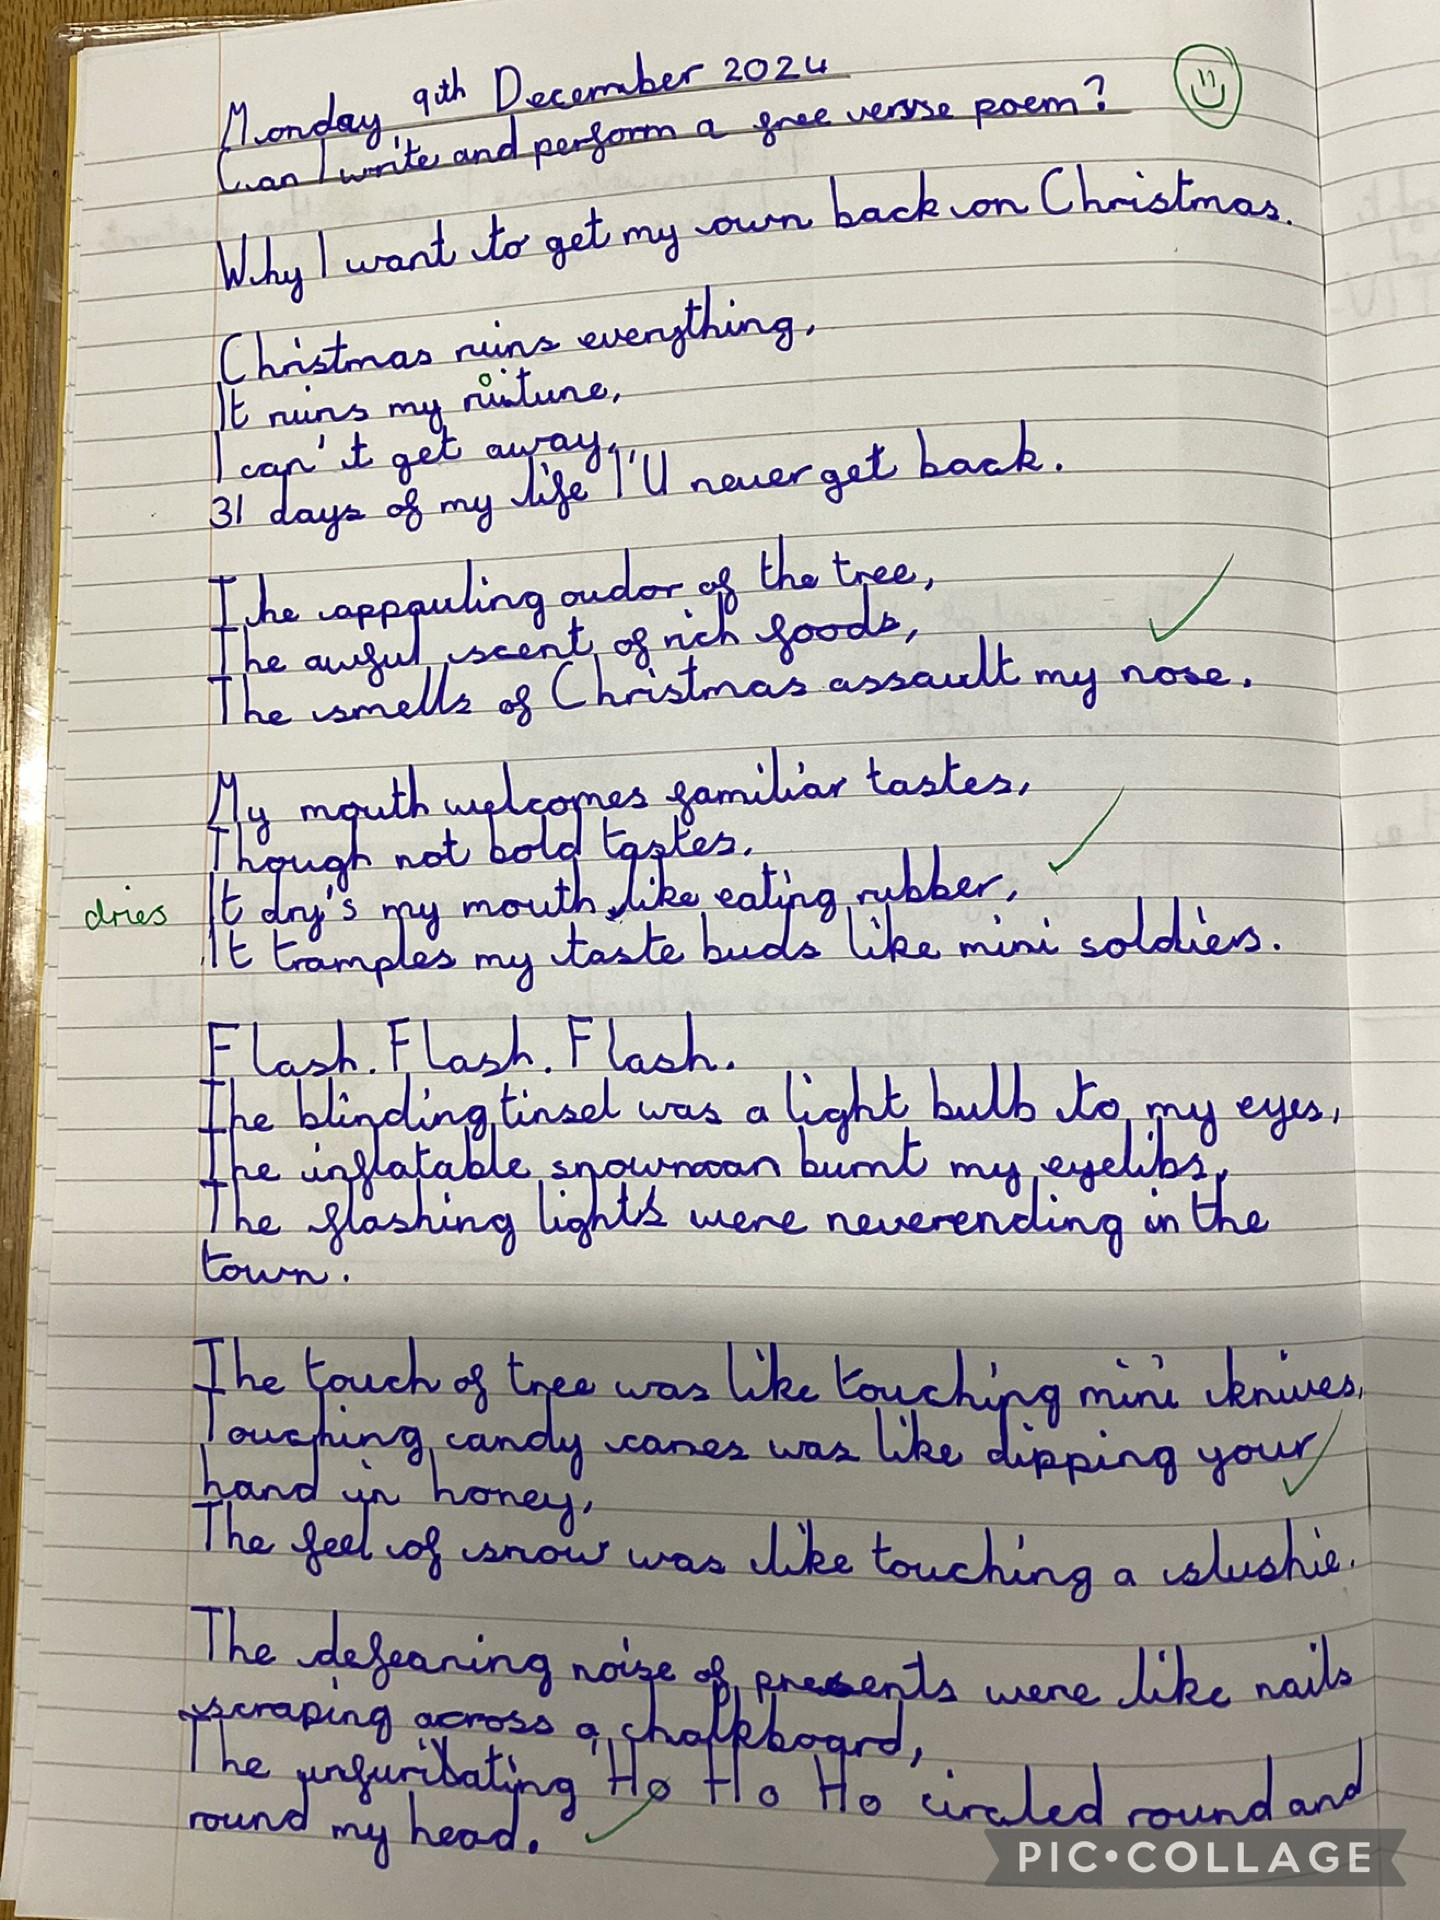 Monday 9th December 2024
Can I write and perform a free verse poem?
Why I want to get my own back on Christmas.
Christmas ruins everything,
It ruins my
I can't get away,
31 days of my life I'll never get back.
The appauling oudor of the tree,
The awful scent of rich foods,
The smells of Christmas assault my nose.
My mouth welcomes familiar tastes,
Though not bold tastes,
dries It dry's my mouth like eating rubber,
It tramples my taste buds like mini soldiers.
Flash. Flash. Flash.
The blinding tinsel was a light bulb to my eyes,
The inflatable snowman burnt my eyelibs,
The flashing lights were neverending in the
town.
The touch of tree was like touching mini knives,
Touching candy canes was like dipping your
hand in honey,
The feel of snow was like touching a slushie.
The defeaning noise of presents were like nails
scraping across a chalkboard,
The 'Ho Ho Ho' circled round and
round my head.
PIC•COLLAGE